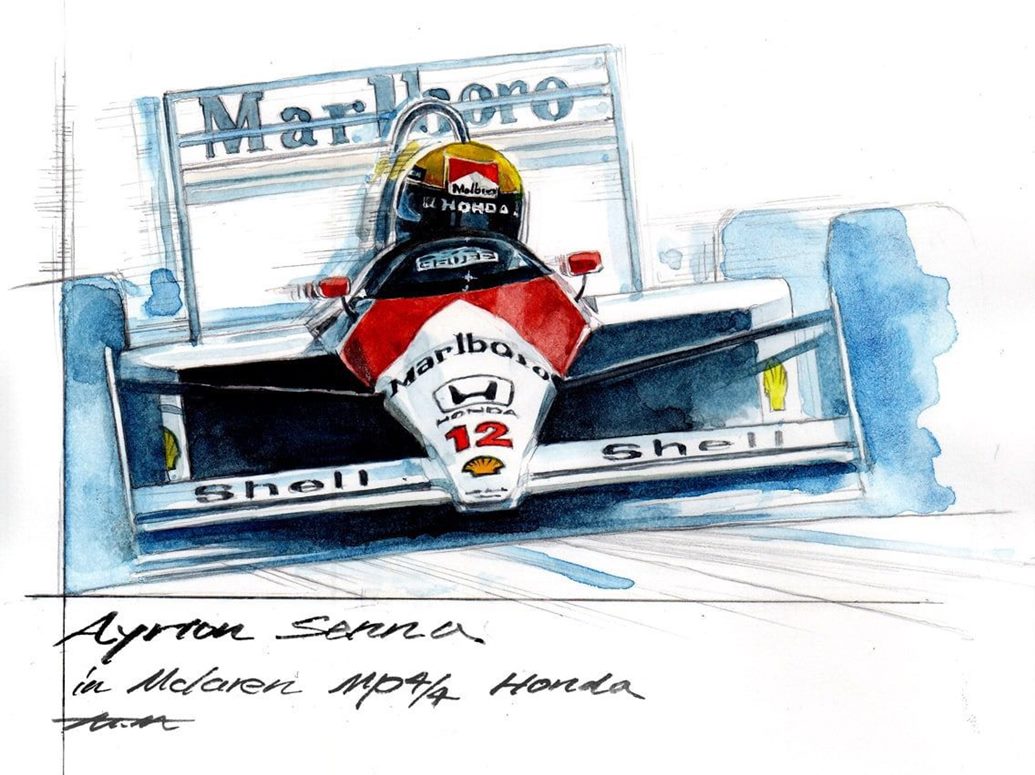 Marlboro
Marlboro
HONDA
Marlboro
HONDA
12
Shell
Shell
Ayrton Senna
in Mclaren MP4/4 Honda